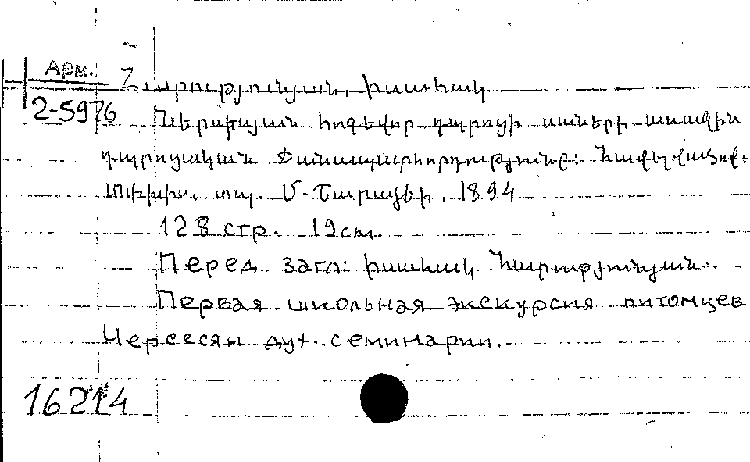 Арм.
2-5976
Հարությունյան, Իսահակ
Ներսիսյան հոգևոր դպրոցի սաների առաջին
դպրոցական ճանապարհորդությունը: Հավելված.
Թիֆլիս, տպ. Մ. Շարաձեի, 1894
128 стр. 19см.
Перед загл: Իսահակ Հարությունյան.
Первая школьная экскурсия питомцев
Нерсесян дух. семинарии.
16214